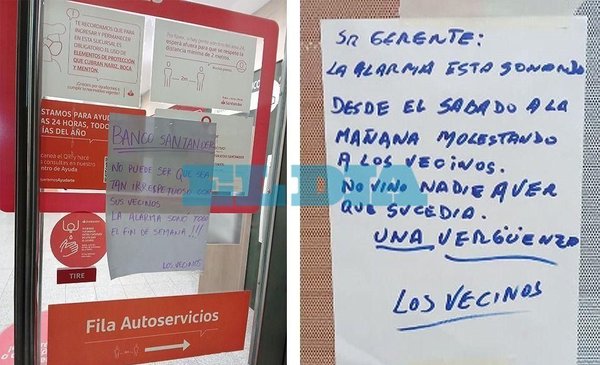 TE RECORDAMOS QUE PARA
INGRESAR Y PERMANECER
EN ESTA SUCURSAL ES
OBLIGATORIO EL USO DE
ELEMENTOS DE PROTECCIÓN
QUE CUBRAN NARIZ, BOCA
Y MENTÓN.
Santander
2m
ESTAMOS PARA AYUDA
LAS 24 HORAS, TODO
DÍAS DEL AÑO
BANCO SANTANDER
NO PUEDE SER QUE SEA
TAN IRRESPETUOSO CON
SUS VECINOS
LA ALARMA SONO TODO
EL FIN DE SEMANA!!!
LOS VECINOS
TIRE
Fila Autoservicios
EL DIA
SR GERENTE:
LA ALARMA ESTA SONANDO
DESDE EL SABADO A LA
MAÑANA MOLESTANDO
A LOS VECINOS.
NO VINO NADIE A VER
QUE SUCEDIA.
UNA VERGÜENZA
LOS VECINOS